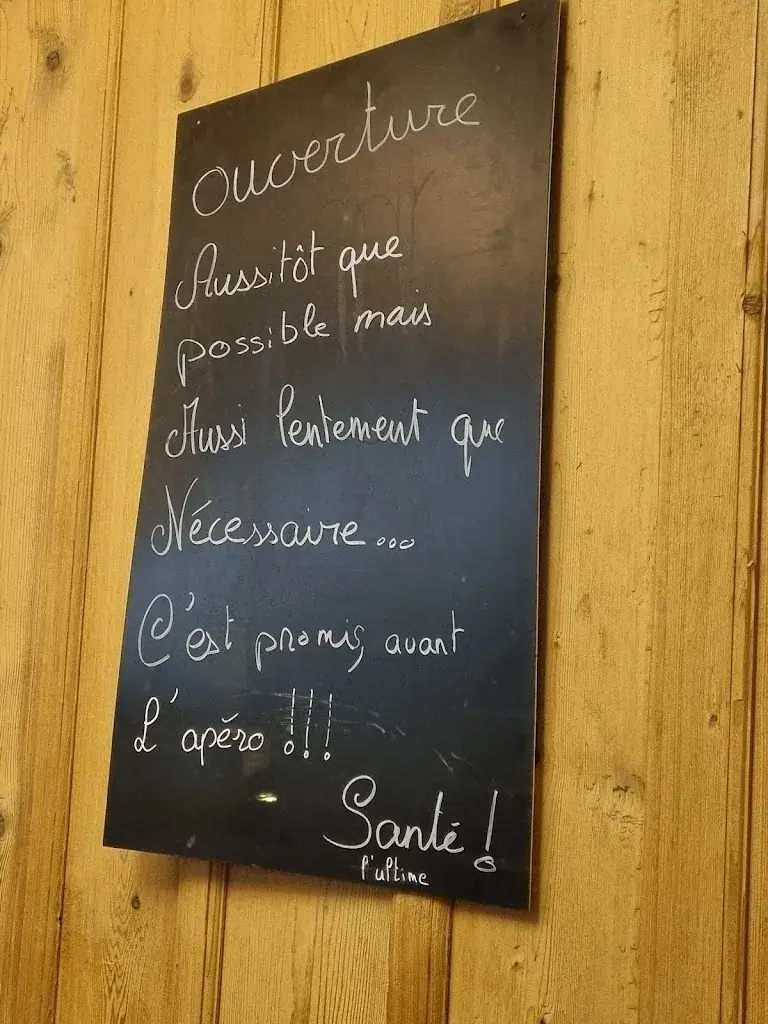 ouverture
Aussitôt que
possible mais
Aussi lentement que
Nécessaire...
C'est promis, avant
L'apéro !!!
Santé !
l'ultime